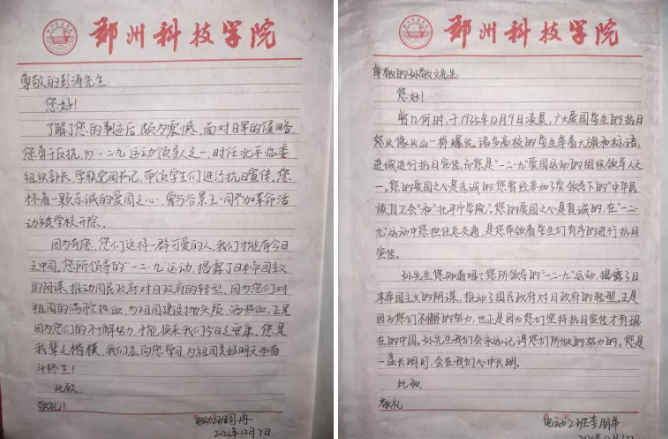 郑州科技学院
尊敬的彭涛先生
您好!
了解了您的事迹后颇为震憾。面对日军的侵略,
您勇于反抗,为一二九"运动领导人之一,时任北平临委
组织部长、学联党团书记,带领学生们进行抗日宣传,您
怀着一颗赤诚的爱国之心,曾与谷景生一同参加革命活
动被学校开除。
因为有您,您们这样一群可爱的人,我们才能有今日
之中国。您所领导的"一二·九"运动,揭露了日本帝国主义
的阴谋,推动国民政府对日政府的转型,因为您们对
祖国的满腔热血,为祖国建设抛头颅、洒热血,正是
因为您们的不懈努力,才能换来我们今日之中国。您是
我辈之楷模,我们应向您学习,为祖国美好明天而奋
斗终生!
此致
敬礼!
电动
2021年12月7日
郑州科技学院
尊敬的孙敬文先生
您好!
曾几何时,于1935年12月9日凌晨,广大爱国学生的抗日
怒火像火山一样爆发。诸多高校的学生拿着大旗和标语,
进城进行抗日宣传,而您是"一二·九"爱国运动的组织领导人之
一。您的爱国之心是赤诚的,您曾经参加了党领导下的"中华民
族自卫会"和"北平中学院"。您的爱国之心是真诚的,在"一二·
九"运动中您担任总交通,是您带领着学生们有序的进行抗日
宣传。
孙先生您知道吗?您所领导的"一二·九"运动,揭露了日
本帝国主义的阴谋,推动了国民政府对日政府的转型,正是
因为您们不懈的努力,也正是因为您们坚持抗日宣传才有现
在的中国。孙先生我们会永远记得您们所做的努力的。您是
一盏长明灯,会在我们心中长明。
此致
敬礼
电动2班李朋
2021年12月7日